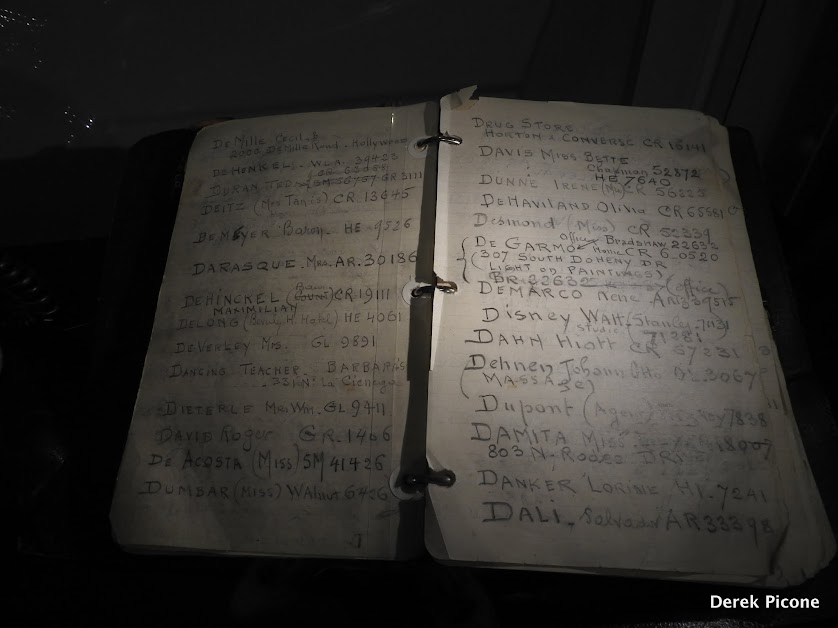 DeMille Cecil B
2005 DeMille Road. Hollywood
DEHENKEL. W.L.A. 39423
GR 3111
DEITZ (Mrs Tanis) CR 13645
DE MEYER Baron. HE-9526
DARASQUE. Mrs. AR. 30186
DEHINCKEL (Baron COUNT) CR 19111
MAXIMILIAN
DELONG (Beverly H. Hotel) HE 4061
DEVERSEY Mrs. GL 9891
DANCING TEACHER. BARBARIS
331 No La Cienega
DIETERLE Mr. Wm. GL 9411
DAVIS Roger GR. 1406
DE ACOSTA (Miss) SM 41426
DUMBAR (Miss) Walnut 6426
DRUG STORE
HORTON & CONVERSE CR 15141
DAVIS MISS BETTE
Chapman 52872
HE 7640
DUNNE IRENE CR 56225
DEHAVILAND Olivia CR 65581
Desmond (Miss) CR 52339
DE GARMO Office Bradshaw 22632
home CR 6-0520
(307 SOUTH DOHENY DR
LIGHT OD PAINTINGS)
BR. 22632 (office)
DEMARCO Rene AR. 39515
DISNEY WALT. Stanley 7131
studio
DAHN Hiatt 71281
CR 57231
Dehnen Johann Otto DL. 3067
(MASSAGE)
Dupont (Agent) 7838
DAMITA Miss 18007
803 N. RODEO DRIVE
DANKER LORINE HI. 7241
DALI. Salvador AR 33398
Derek Picone